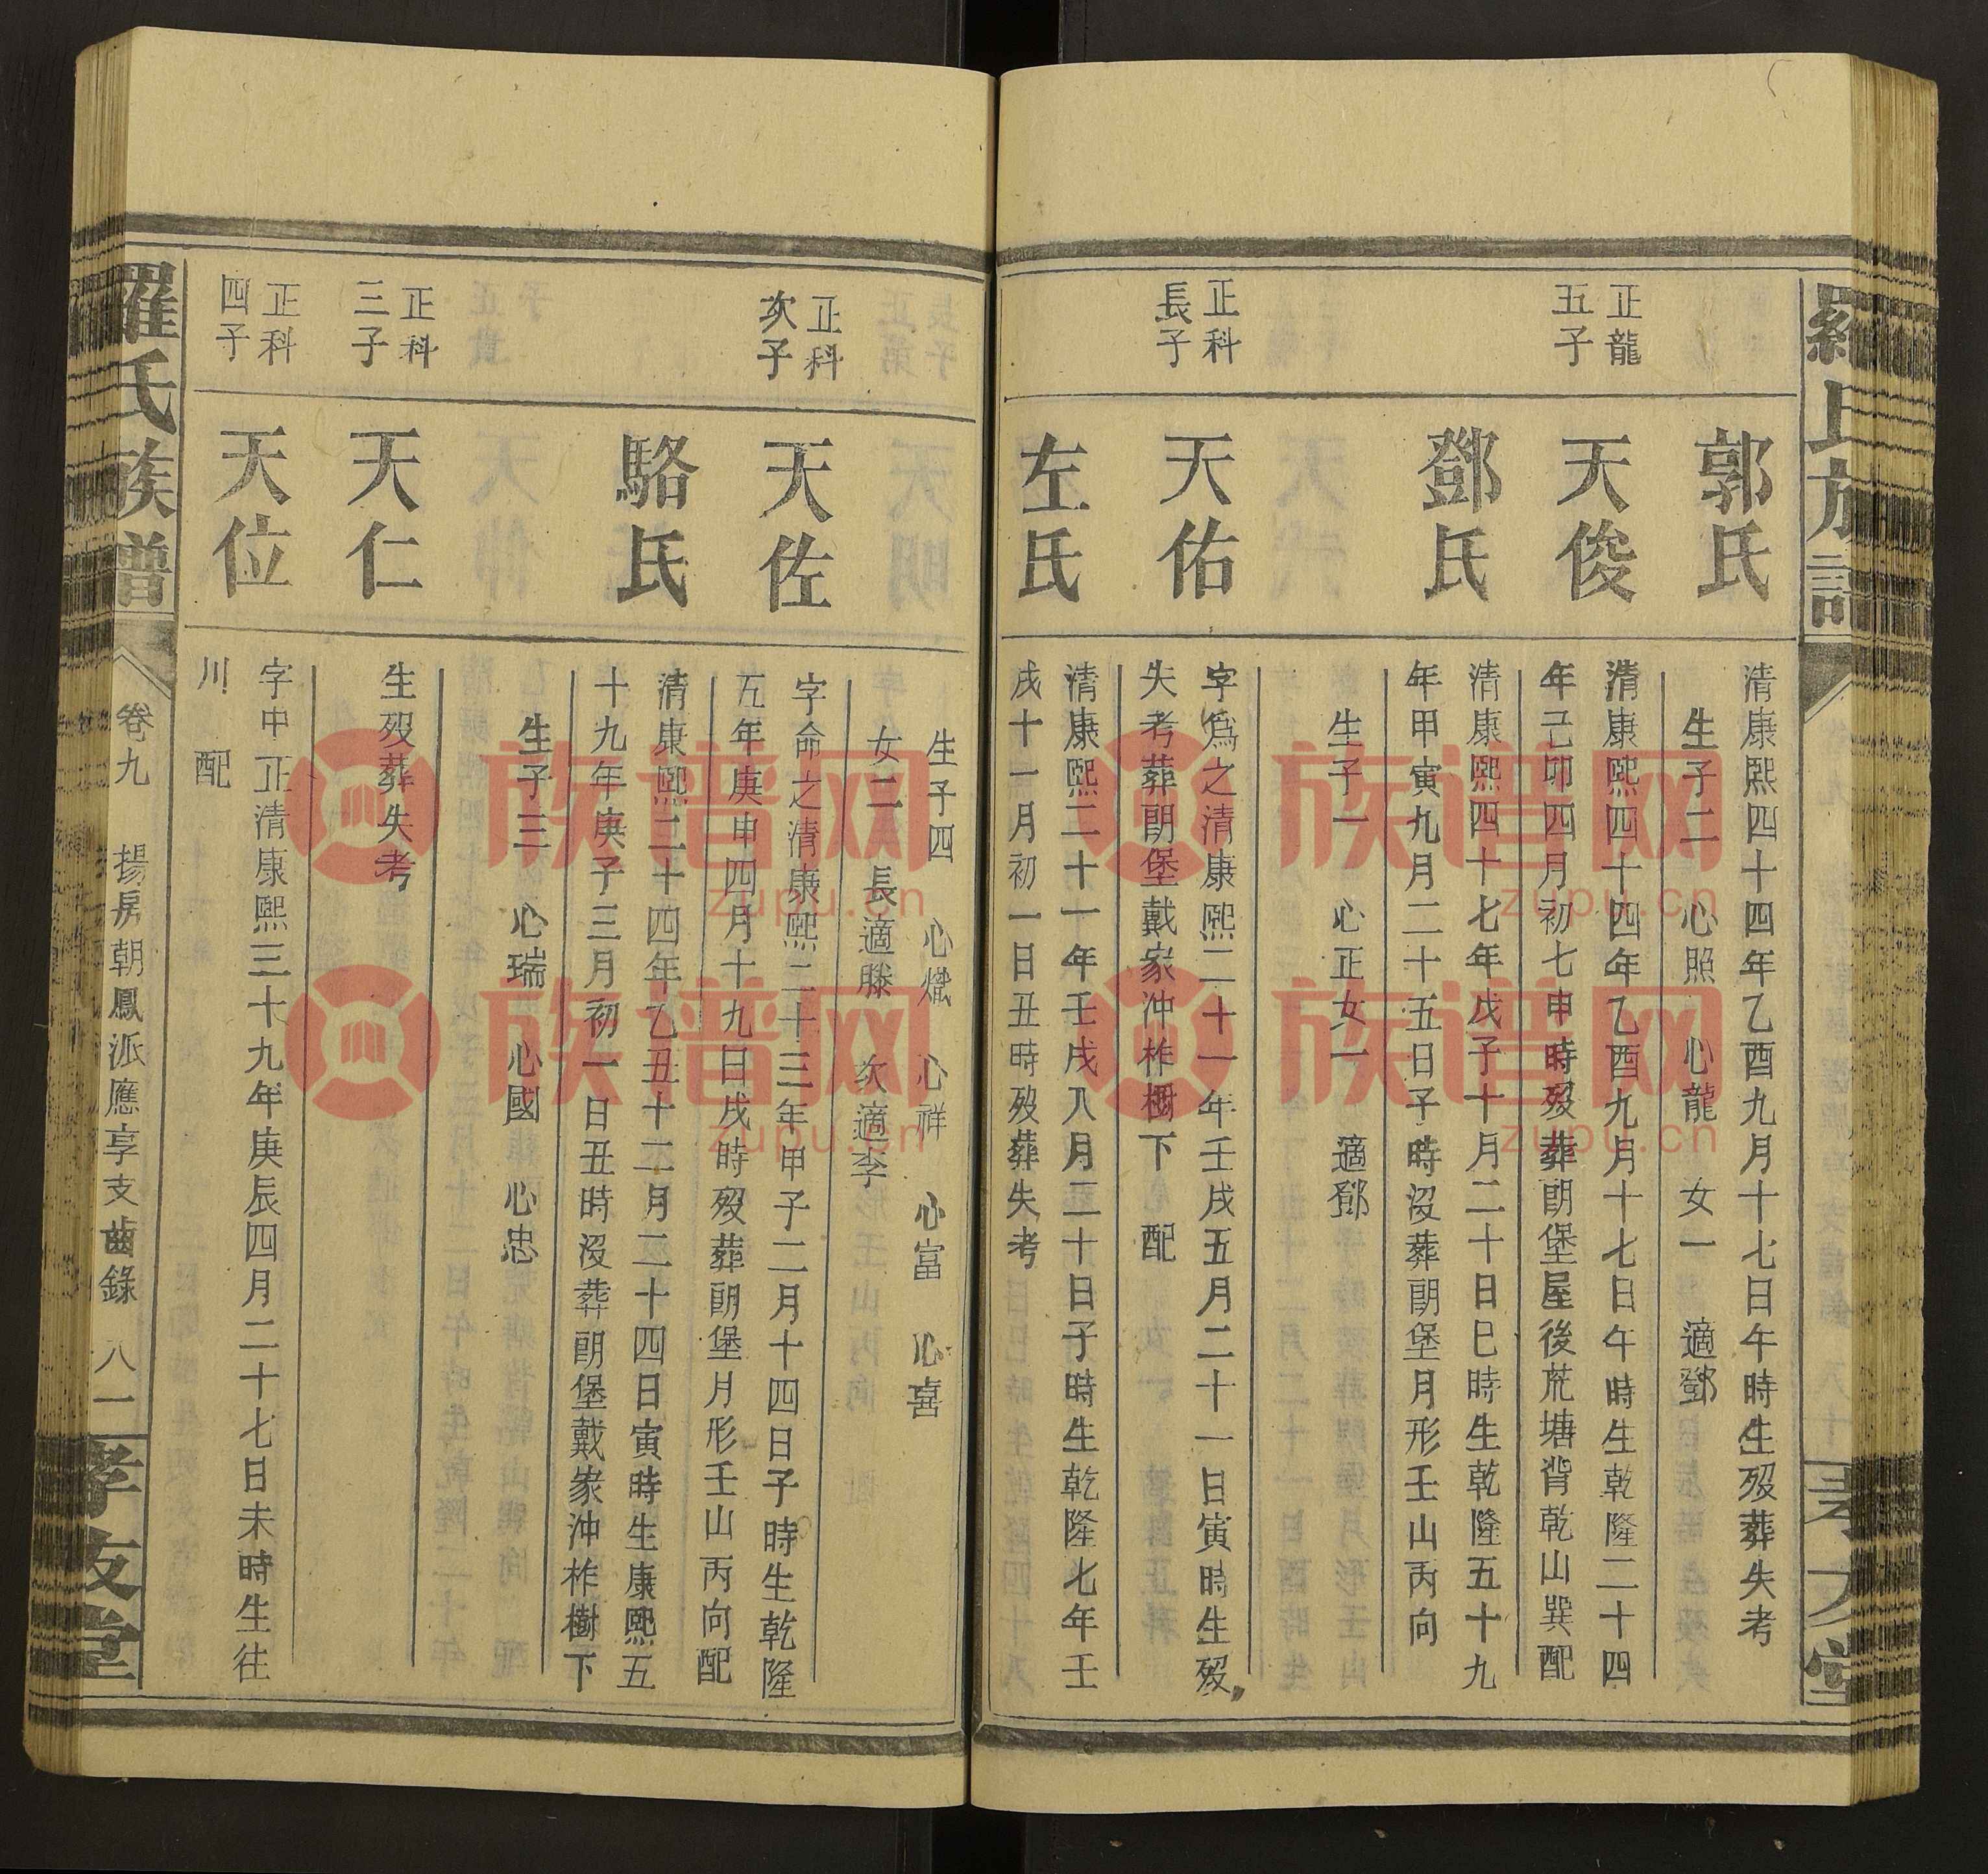 羅氏族譜
孝友堂
郭氏
清康熙四十四年乙酉九月十七日午時生歿葬失考
生子二 心照 心龍 女一 適鄧
正龍
五子
天俊
清康熙四十四年乙酉九月十七日午時生乾隆二十四
年己卯四月初七申時歿葬朗堡屋後荒塘背乾山巽配
鄧氏
清康熙四十七年戊子十月二十日巳時生乾隆五十九
年甲寅九月二十五日子時沒葬朗堡月形壬山丙向
生子一 心正女一 適鄧
正科
長子
天佑
字為之清康熙二十一年壬戌五月二十一日寅時生歿
失考葬朗堡戴家沖柞樹下 配
左氏
清康熙二十一年壬戌八月二十日子時生乾隆七年壬
戌十一月初一日丑時歿葬失考
生子四 心熾 心祥 心富 心喜
女二 長適滕 次適李
正科
次子
天佐
字命之清康熙二十三年甲子二月十四日子時生乾隆
五年庚申四月十九日戌時歿葬朗堡月形壬山丙向配
駱氏
清康熙二十四年乙丑十二月二十四日寅時生康熙五
十九年庚子三月初一日丑時沒葬朗堡戴家沖柞樹下
生子三 心瑞 心國 心忠
正科
三子
天仁
生歿葬失考
正科
四子
天位
字中正清康熙三十九年庚辰四月二十七日未時生往
川 配
羅氏族譜
卷九 揚房朝鳳派應享支齒錄 八一
孝友堂
族谱网
zupu.cn
族谱网
zupu.cn
族谱网
zupu.cn
族谱网
zupu.cn